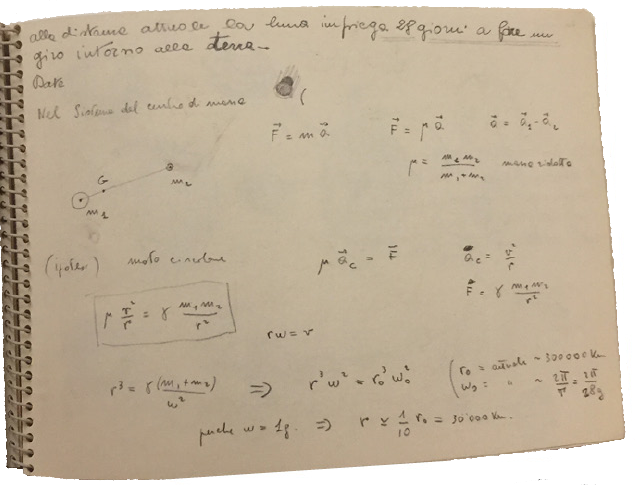 alla distanza attuale la luna impiega 28 giorni a fare un
giro intorno alla terra.
Date
Nel Sistema del centro di massa
F⃗ = m a⃗ F⃗ = μ a⃗ a⃗ = a⃗₁ - a⃗₂
μ = m₁m₂/(m₁+m₂) massa ridotta
G
m₂
m₁
(ipotesi) moto circolare μ a⃗c = F⃗ ac = v²/r
F = γ m₁m₂/r²
μ v²/r = γ m₁m₂/r²
rω = v
r³ = γ(m₁+m₂)/ω² ⇒ r³ω² = r₀³ω₀² (r₀ = attuale ~ 300000 km
ω₀ = " ~ 2π/T = 2π/28g
perche ω = 1g. ⇒ r ≃ 1/10 r₀ = 30000 km.